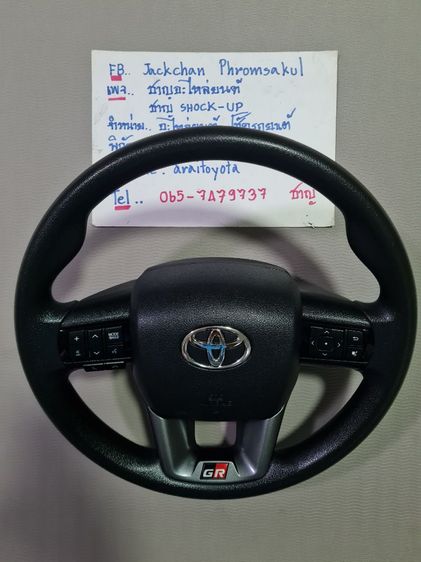 FB.. Jackchan Phromsakul
เพจ.. ชาญอะไหล่ยนต์
ชาญ SHOCK-UP
จำหน่าย.. อะไหล่ยนต์
araitoyota
Tel.. 065-7479737 ชาญ
MODE
GR